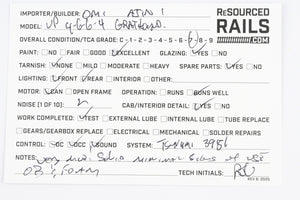 IMPORTER/BUILDER: OMI AJIN! ReSOURCED
MODEL: UP 4-6-6-4 RAILS
OVERALL CONDITION/TCA GRADE: C-1-2-3-4-5-6-7-8-9 .COM
PAINT: NO FAIR GOOD EXCELLENT GLAZING: YES NO
TARNISH: NONE MILD MODERATE HEAVY SPARE PARTS: YES NO
LIGHTING: FRONT REAR INTERIOR OTHER:
MOTOR: CAN OPEN FRAME OPERATION: RUNS RUNS WELL
NOISE (1 OF 10): 2 CAB/INTERIOR DETAIL: YES NO
WORK COMPLETED: TEST EXTERNAL LUBE INTERNAL LUBE TUBE REPLACE
GEARS/GEARBOX REPLACE ELECTRICAL MECHANICAL SOLDER REPAIRS
CONTROL: DC DCC SOUND SYSTEM: TSUNAMI
NOTES: very nice. Solid minimal signs of use
OB & FOAM TECH INITIALS: